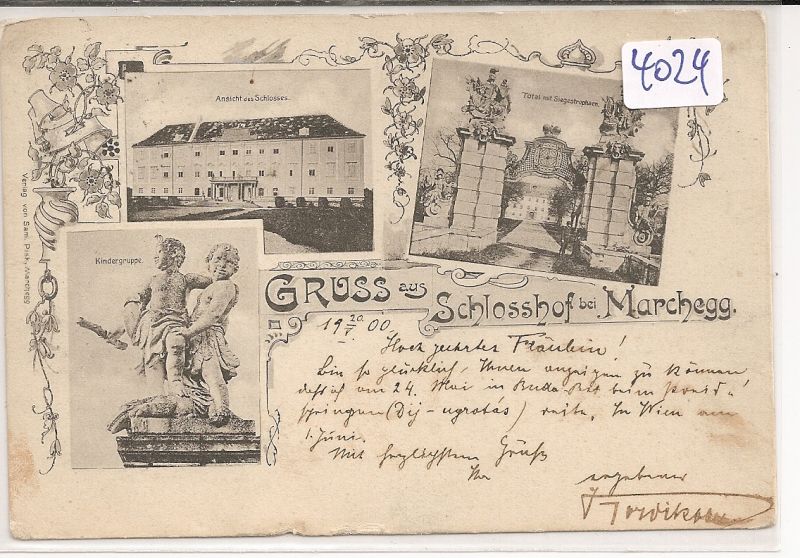 4024
Ansicht des Schlosses.
Total mit Siegestrophäen.
Kindergruppe.
Verlag von Sam. Marchegg
GRUSS aus Schlosshof bei Marchegg.
19 20/V 00.
Hoch geehrtes Fräulein!
Bin so glücklich, Ihnen anzeigen zu können
daß ich am 24. Mai in Buda-Pest beim Preis-
springen (Dij-ugratás) reite. In Wien am
1. Juni.
Mit herzlichstem Gruß
Ihr ergebener